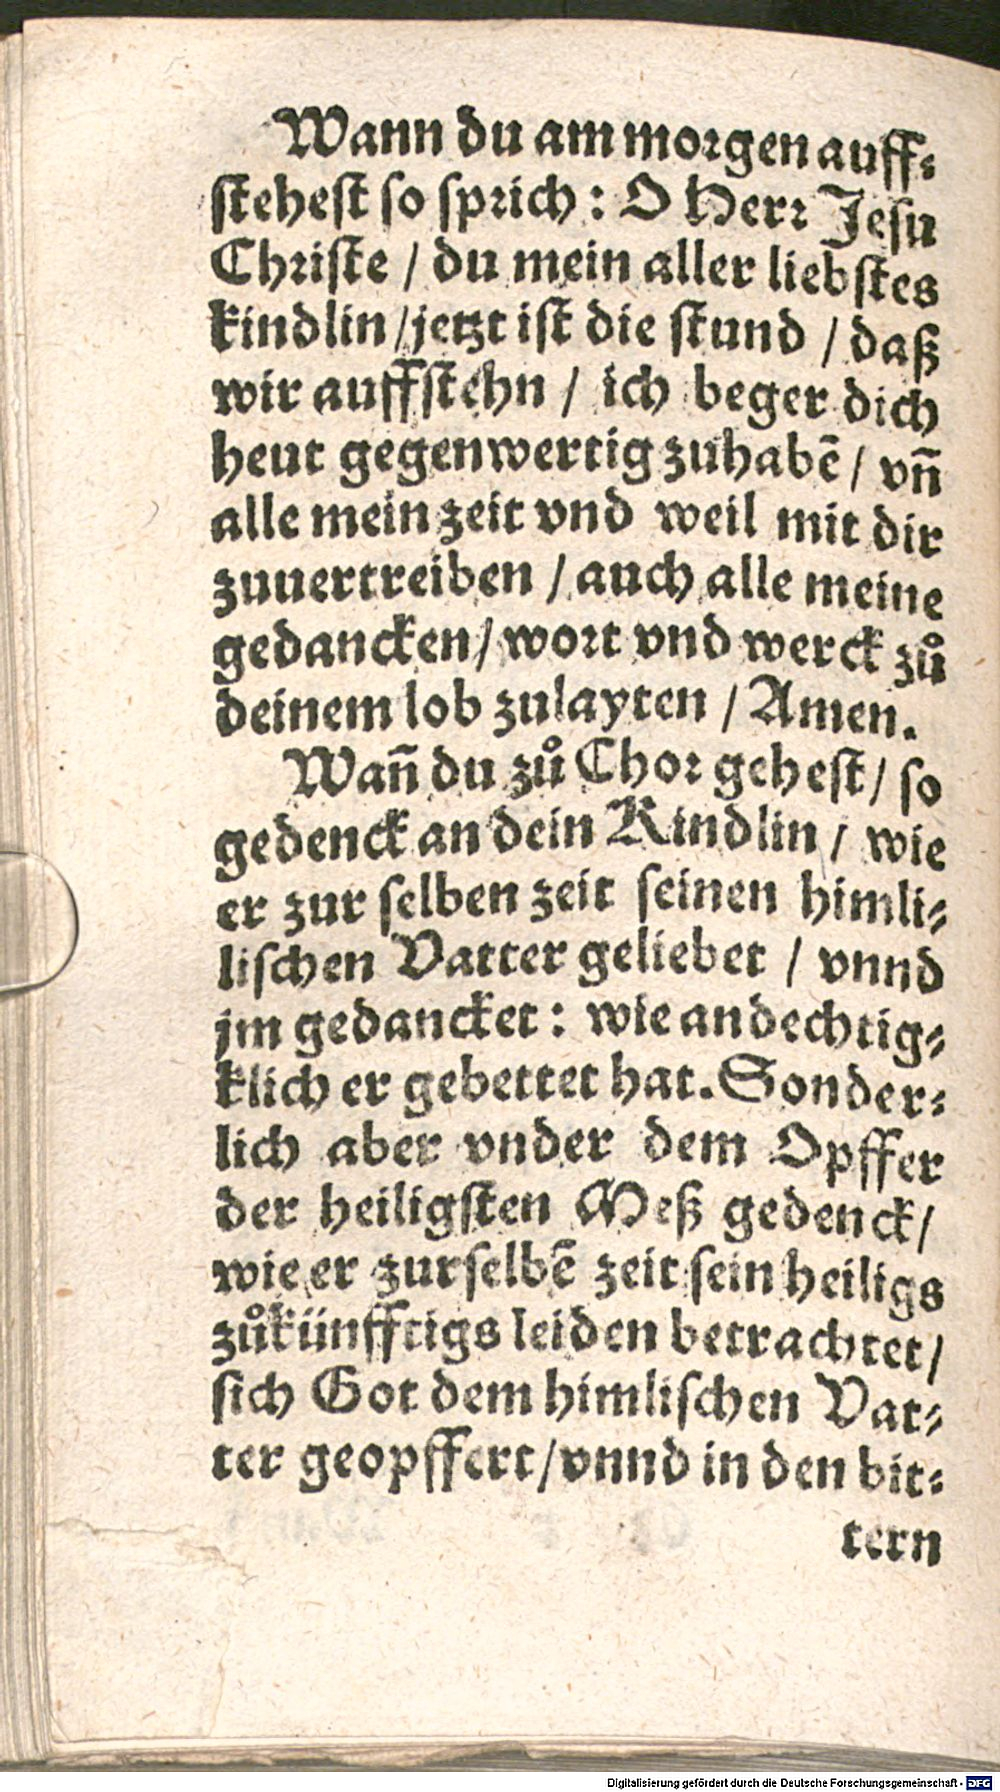 Wann du am morgen auff⸗
ſteheſt ſo ſprich: O Herr Jeſu
Chriſte / du mein aller liebſtes
kindlin / jetzt iſt die ſtund / daß
wir auffſtehn / ich beger dich
heut gegenwertig zuhabē / vn̄
alle mein zeit vnd weil mit dir
zuuertreiben / auch alle meine
gedancken / wort vnd werck zuͦ
deinem lob zulayten / Amen.
Wan̄ du zuͦ Chor geheſt / ſo
gedenck an dein Kindlin / wie
er zur ſelben zeit ſeinen himli⸗
liſchen Vatter geliebet / vnnd
jm gedancket: wie andechtig⸗
klich er gebettet hat. Sonder⸗
lich aber vnder dem Opffer
der heiligſten Meß gedenck /
wie er zur ſelbē zeit ſein heiligs
zuͦkünfftigs leiden betrachtet /
ſich Got dem himliſchen Vat⸗
ter geopffert / vnnd in den bit⸗
tern
Digitalisierung gefördert durch die Deutsche Forschungsgemeinschaft - DFG